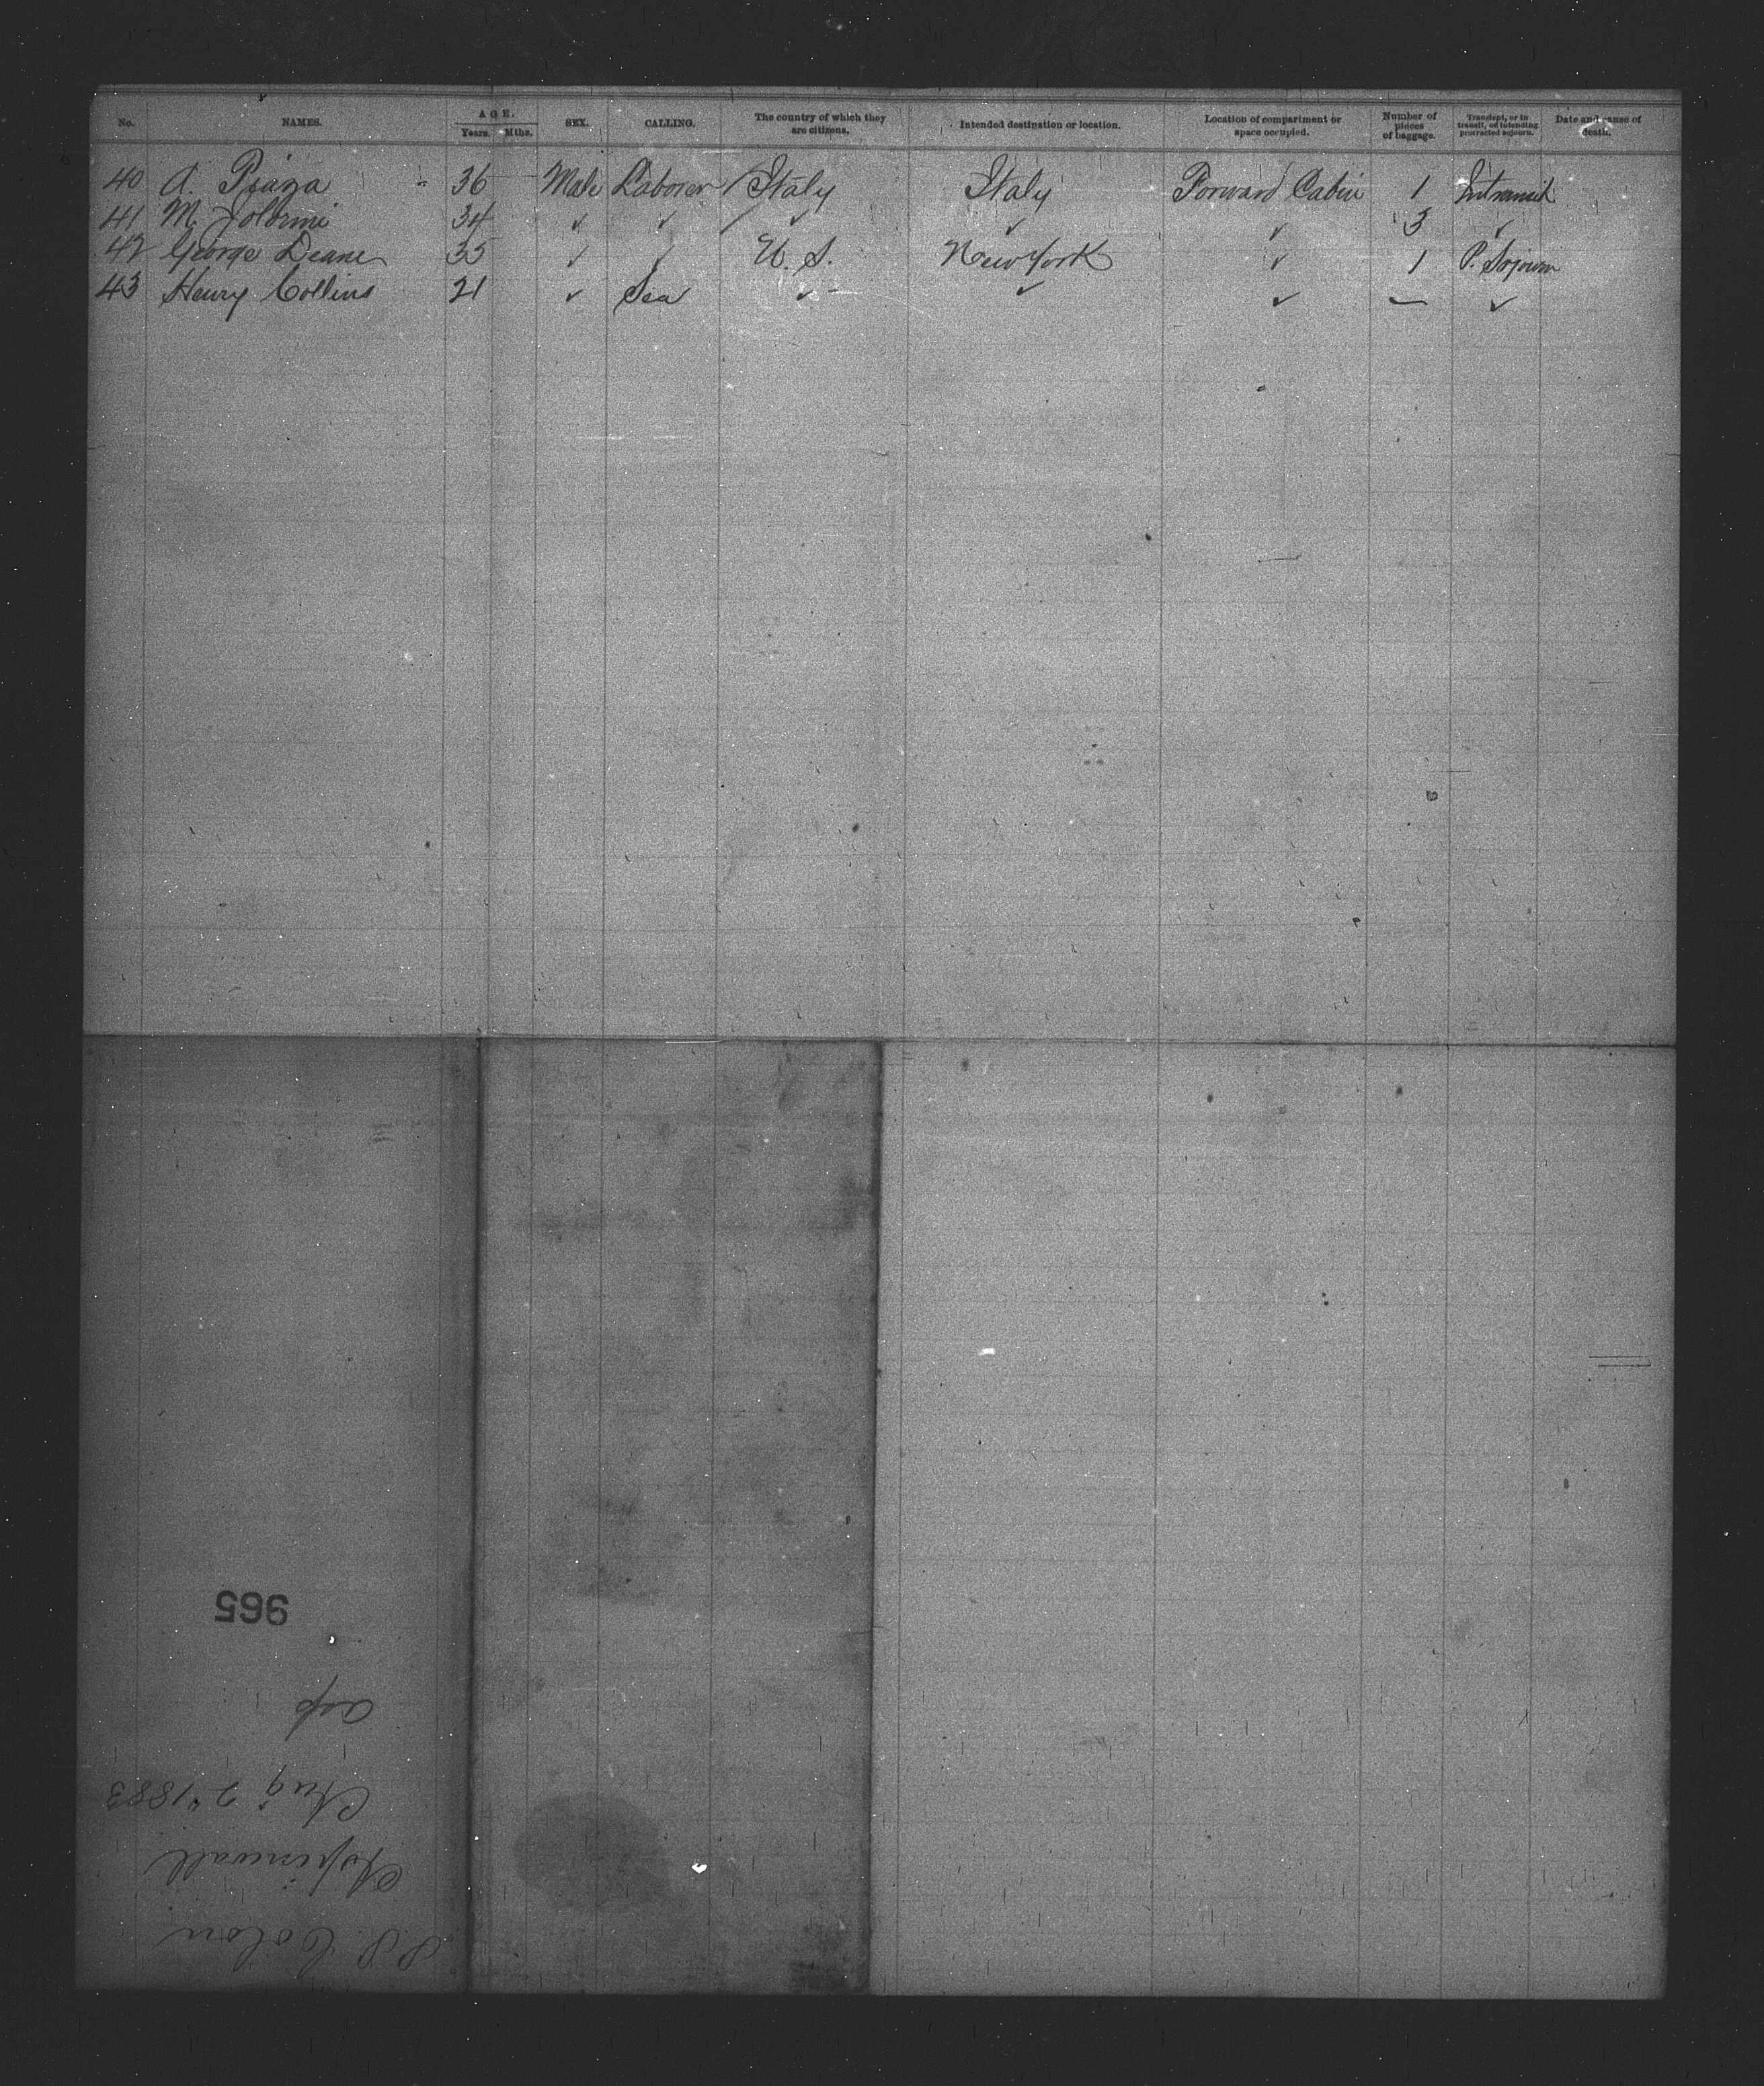 No. NAMES. AGE. Years. Mths. SEX. CALLING. The country of which they are citizens. Intended destination or location. Location of compartment or space occupied. Number of pieces of baggage. Transient, or in transit, or intending protracted sojourn. Date and cause of death.
40 A. Piaza 36 Male Laborer Italy Italy Forward Cabin 1 Intransit
41 M. 34 ✓ ✓ ✓ ✓ ✓ 3 ✓
42 George Deane 35 ✓ ✓ U. S. New York ✓ 1 P. Sojourn
43 Henry Collins 21 ✓ Sea ✓ ✓ ✓ — ✓
S.S. Colon
Aspinwall
Aug 2" 1883
965